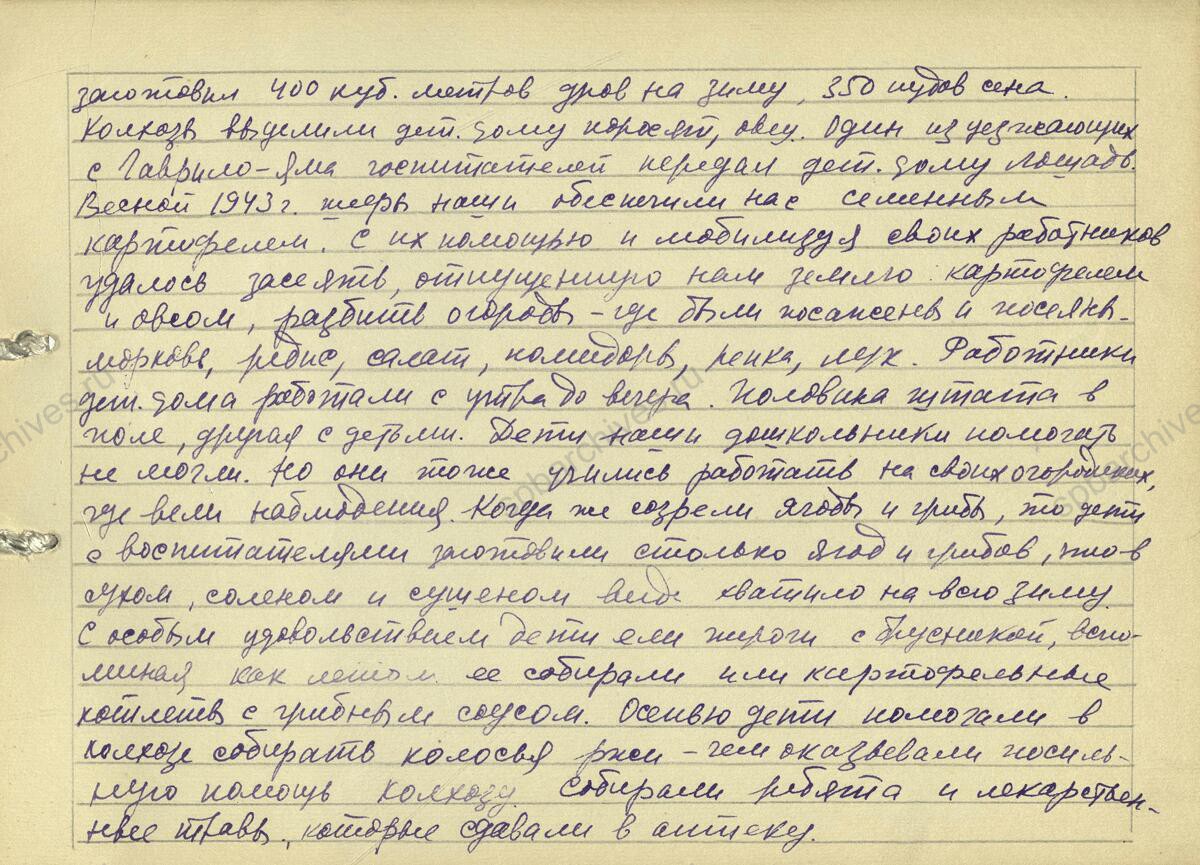 заготовил 400 куб. метров дров на зиму, 350 пудов сена.
Колхозы выделили дет. дому поросят, овец. Один из уезжающих
с Гаврило-яма госпиталей передал дет. дому лошадь.
Весной 1943 г. шефы наши обеспечили нас семенным
картофелем. С их помощью и мобилизуя своих работников
удалось засеять, отпущенную нам землю картофелем
и овсом, разбить огороды – где были посажены и посеяны
морковь, редис, салат, помидоры, репка, лук. Работники
дет. дома работали с утра до вечера. Половина штата в
поле, другая с детьми. Дети наши дошкольники помогать
не могли. Но они тоже учились работать на своих огородиках,
где вели наблюдения. Когда же созрели ягоды и грибы, то дети
с воспитателями заготовили столько ягод и грибов, что в
сухом, соленом и сушеном виде хватило на всю зиму.
С особым удовольствием дети ели пироги с брусникой, вспо-
миная как летом ее собирали или картофельные
котлеты с грибным соусом. Осенью дети помогали в
колхозе собирать колосья ржи – чем оказывали посиль-
ную помощь колхозу. Собирали ребята и лекарствен-
ные травы, которые сдавали в аптеку.
spbarchives.ru